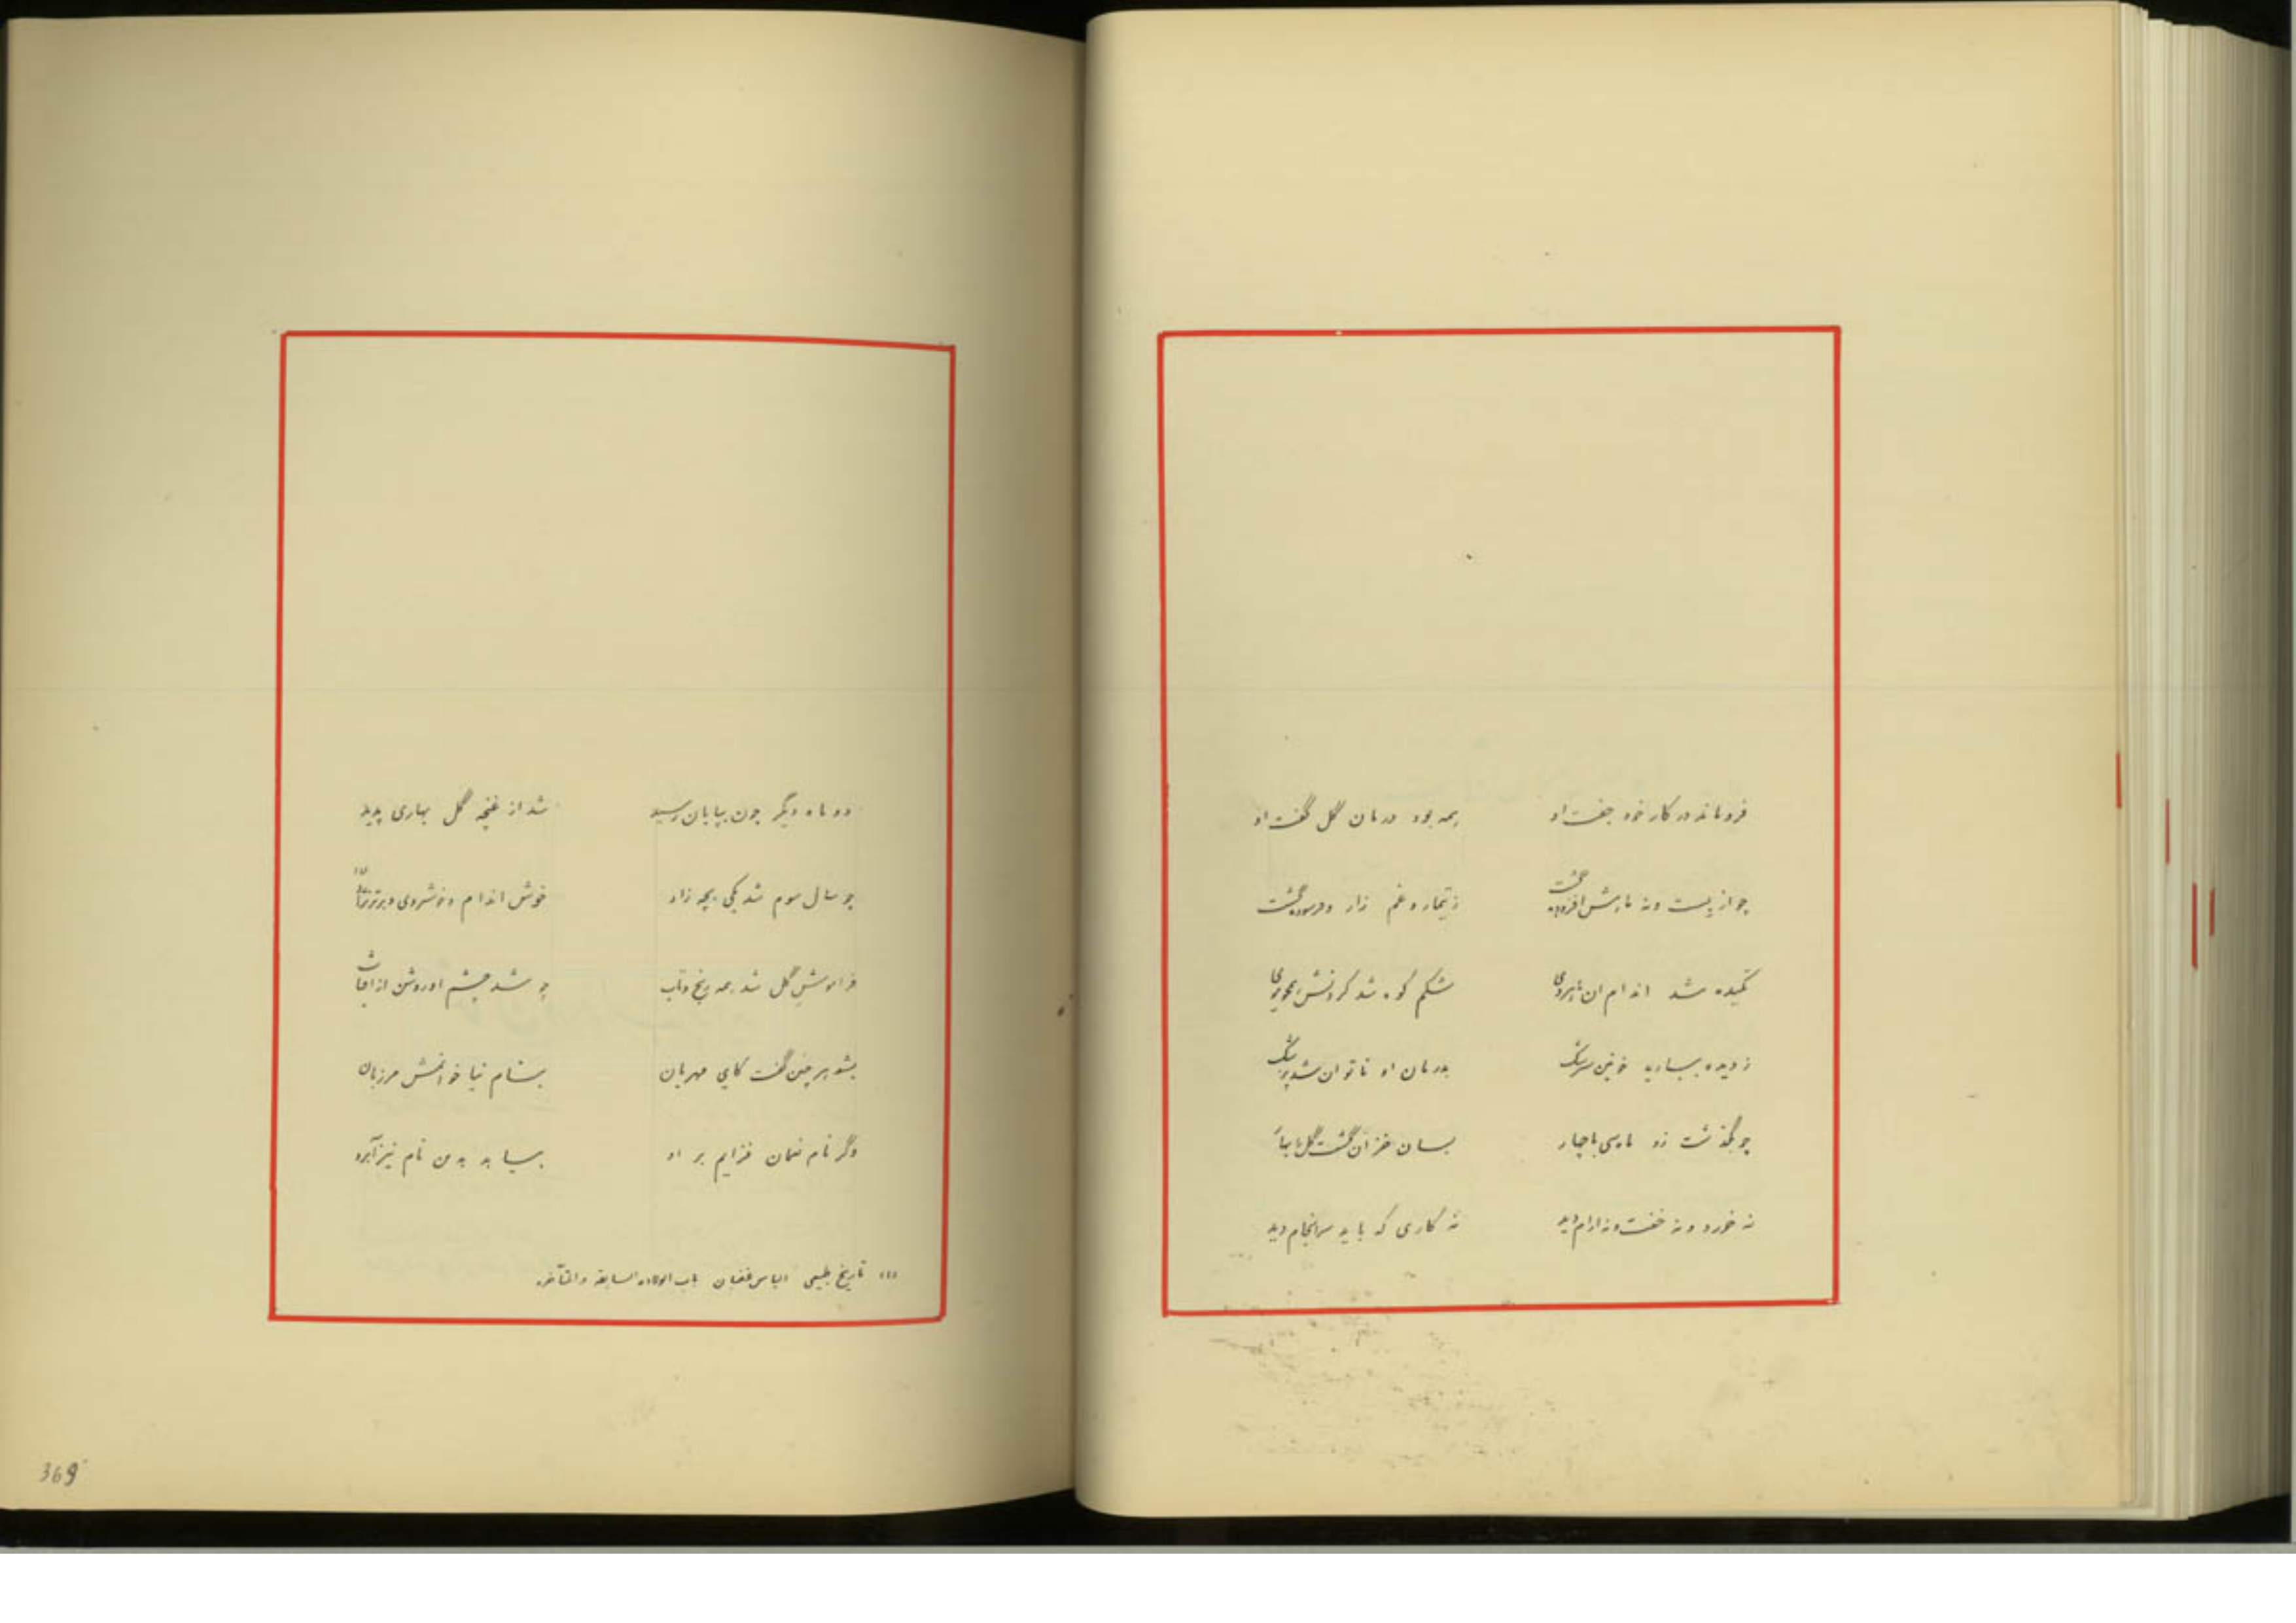 فروماند در کار خود جفت او همه بود درمان گل گفت او
چو از بیست و نه مایهش افزوده گشت ز تیمار و غم زار و فرسوده گشت
تکیده شد اندام آن شکم کوه شد گردنش
ز دیده ببارید خونین سرشک بدرمان او ناتوان شد پزشک
چو بگذشت زو ماه سی با چهار بسان خزان گشت گل با بهار
نه خورد و نه خفت و نه آرام دید نه کاری که باید سرانجام دید
دو ماه دیگر چون بپایان رسید شد از غنچه گل بهاری پدید
چو سال سوم شد یکی بچه زاد خوش اندام و خوشروی و برتر نژاد (۱)
فراموش گل شد همه رنج و تاب چو شد چشم او روشن از آفتاب
بشوهر چنین گفت کای مهربان بنام نیا خوانمش مرزبان
وگر نام نعمان فزایم بر او بیابد بدین نام نیز آبرو
(۱) تاریخ طبیعی الیاس غضبان باب الولادة السابقة والمتأخرة
369